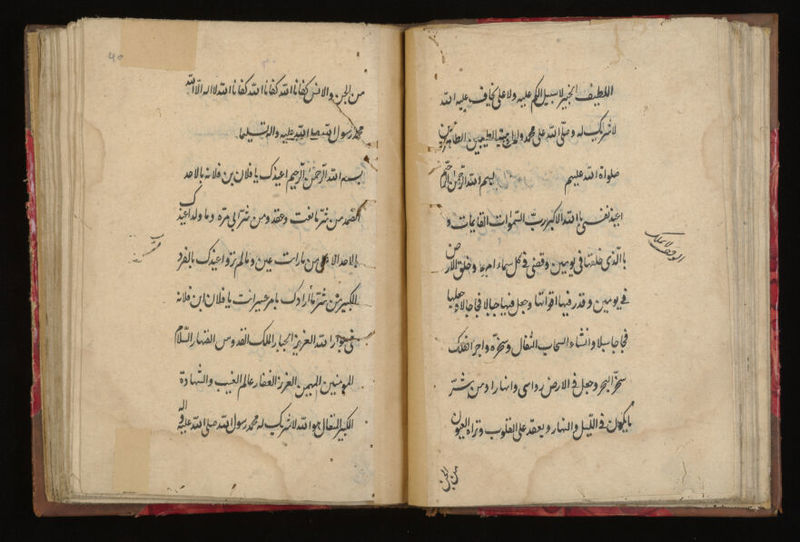 اللطيف الخبير لا سبيل لكم عليه ولا على يخاف عليه الله
لا شريك له وصلى الله على محمد وآله الطيبين الطاهرين
صلواة الله عليهم بسم الله الرحمن الرحيم
اعيذ نفسي بالله الاكبر رب السموات القائمات و
بالذي خلقها في يومين وقضى في كل سماء امرها وخلق الارض
في يومين وقدر فيها اقواتها وجعل فيها جبالا
فجاجا سبلا وانشاء السحاب الثقال وسخره واجرا الفلك
سخر البحر وجعل في الارض رواسى وانهارا ومن شر
ما يكون في الليل والنهار ويعقد على القلوب وتراه العيون
من الجن
من الجن والانس كفانا الله كفانا الله كفانا الله لا اله الا الله
محمد رسول الله صلى الله عليه واله وسلم تسليما
بسم الله الرحمن الرحيم اعيذك يا فلان بن فلانه بالاحد
الصمد من شر ما نفث وعقد ومن شر ابي مره وما ولد اعيذك
بالاحد الاعلى من ما رات عين وما لم تر واعيذك بالفرد
الكبير من شر ما أرادك بامر عسير انت يا فلان ابن فلانه
في جوار الله العزيز الجبار الملك القدوس القهار السلام
المؤمنين المهيمن العزيز الغفار عالم الغيب والشهادة
الكبير المتعال هو الله لا شريك له محمد رسول الله صلى الله عليه واله